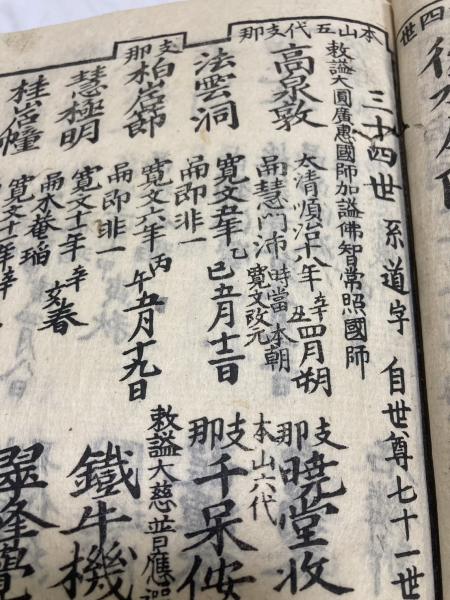 三十四世 系道字 自世尊七十一世
本山五代支那
敕謚大圓廣惠國師加謚佛智常照國師
高泉敦
大清順治十八年辛丑四月朔
嗣慧門沛 時當本朝寛文改元
法雲洞
寛文五年乙巳五月十三日
嗣即非一
支那
柏岩節
寛文六年丙午五月十九日
嗣即非一
慧極明
寛文十一年辛亥春
嗣木菴瑫
桂岩幢
寛文十一年辛
支那
本山六代
曉堂收
支那
千呆侒
敕謚大慈普應禪
鐵牛機
翠峰覺
四世